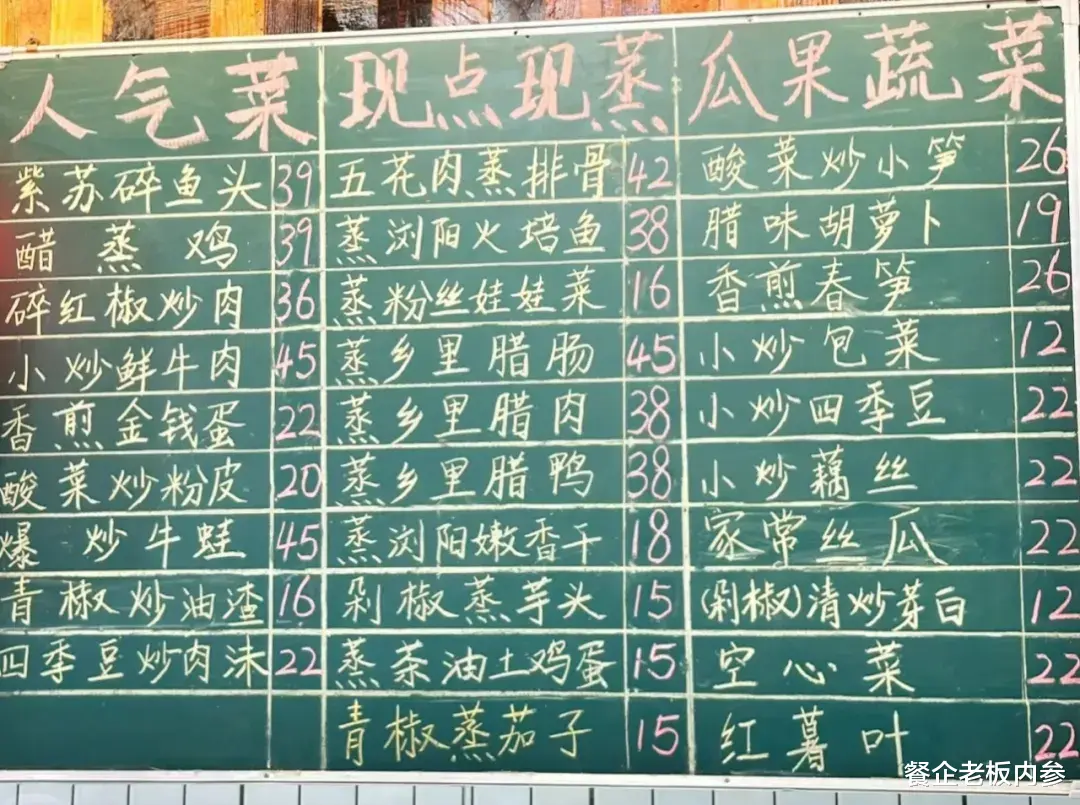 人气菜 现点现蒸 瓜果蔬菜
紫苏碎鱼头 39 五花肉蒸排骨 42 酸菜炒小笋 26
醋蒸鸡 39 蒸浏阳火焙鱼 38 腊味胡萝卜 19
碎红椒炒肉 36 蒸粉丝娃娃菜 16 香煎春笋 26
小炒鲜牛肉 45 蒸乡里腊肠 45 小炒包菜 12
香煎金钱蛋 22 蒸乡里腊肉 38 小炒四季豆 22
酸菜炒粉皮 20 蒸乡里腊鸭 38 小炒藕丝 22
爆炒牛蛙 45 蒸浏阳嫩香干 18 家常丝瓜 22
青椒炒油渣 16 剁椒蒸芋头 15 (剁椒)清炒芽白 12
四季豆炒肉沫 22 蒸茶油土鸡蛋 15 空心菜 22
青椒蒸茄子 15 红薯叶 22
餐企老板内参